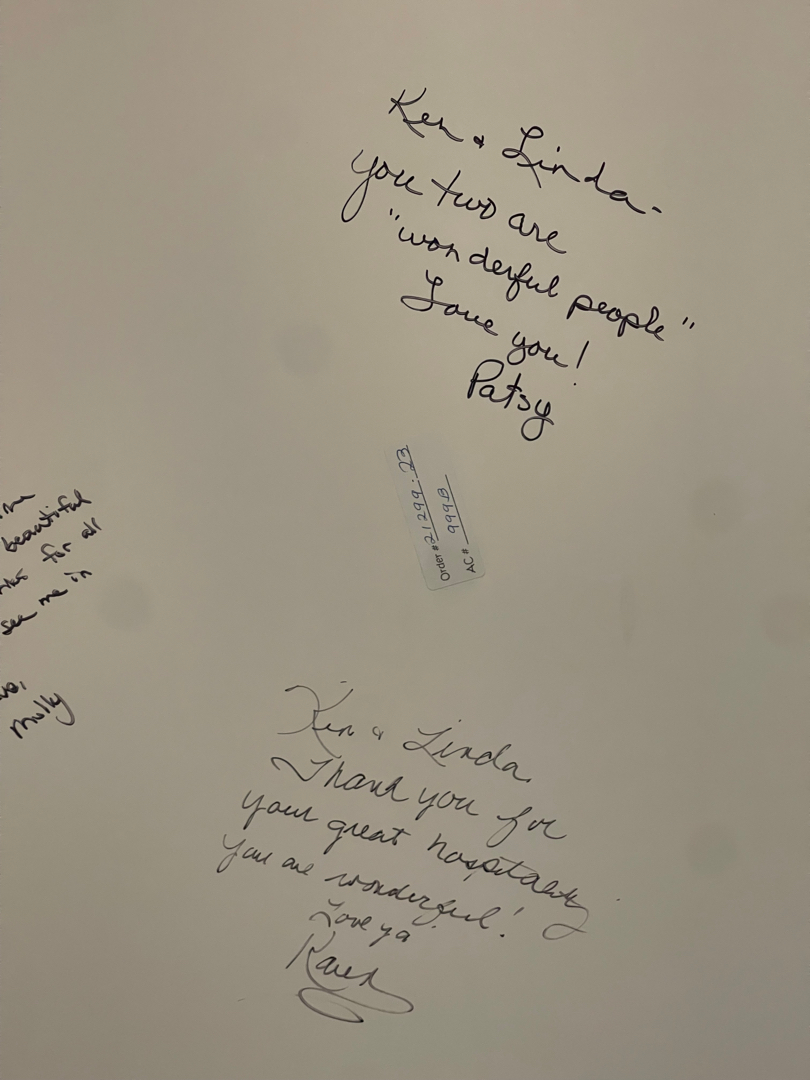 Ken & Linda-
you two are
"wonderful people"
Love you!
Patsy
Order # 21299:23
AC # 999B
beautiful
for all
see me in
Molly
Ken & Linda
Thank you for
your great hospitality.
You are wonderful!
Love ya
Karen